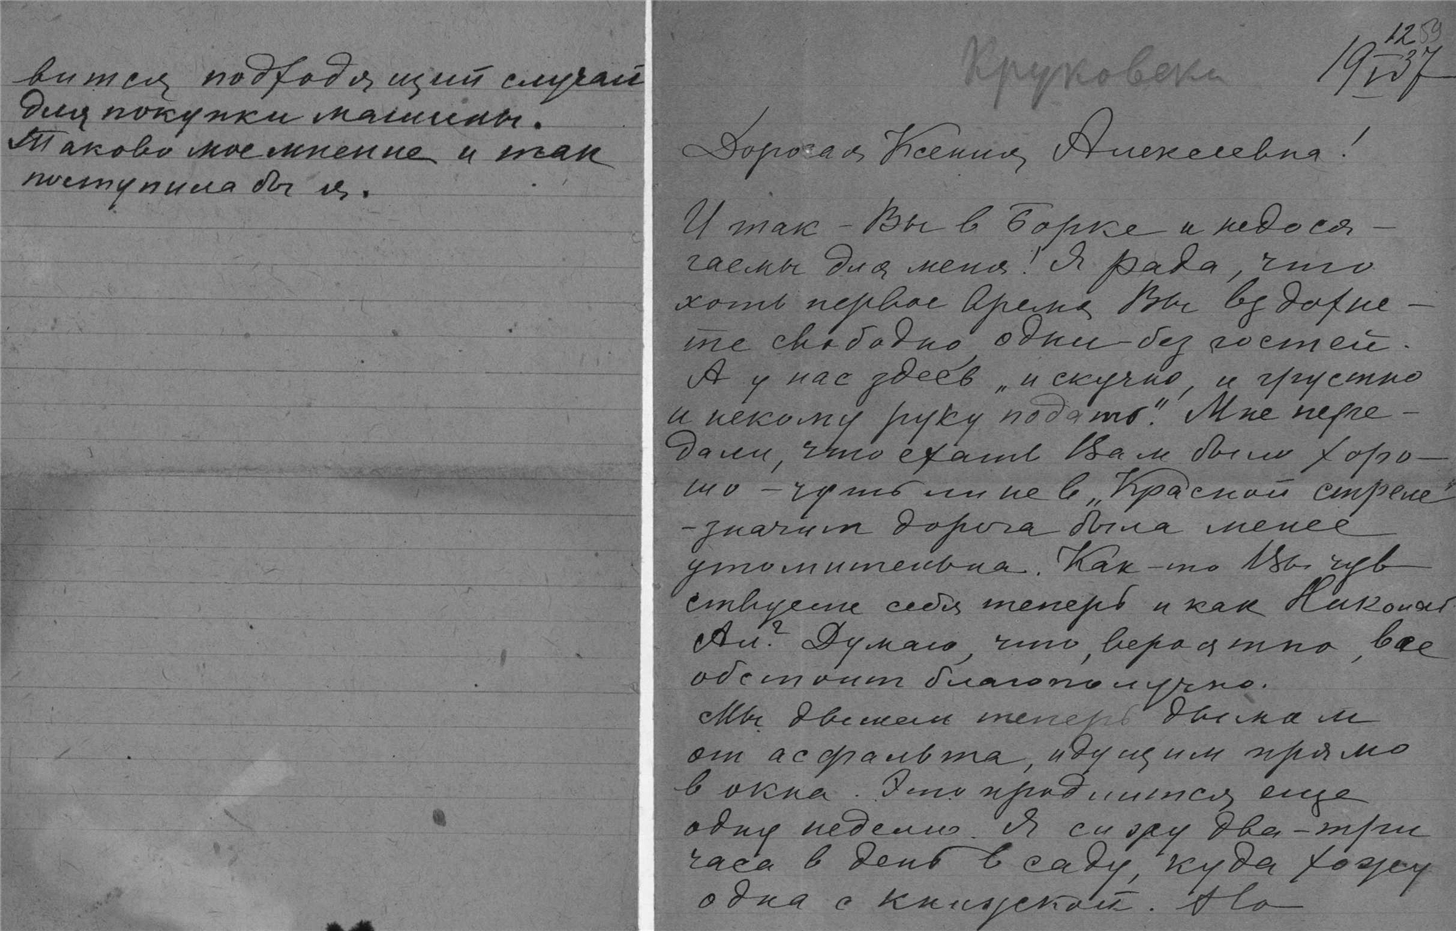 вится подходящий случай
для покупки машины.
Таково мое мнение и так
поступила бы я.
Круковская
12 59
19 VI 37
Дорогая Ксения Алексеевна!
И так – Вы в Борке и недося-
гаемы для меня! Я рада, что
хоть первое время Вы вздохне-
те свободно, одни – без гостей.
А у нас здесь „и скучно, и грустно
и некому руку подать". Мне пере-
дали, что ехать Вам было хоро-
шо – чуть ли не в „Красной стреле"
– значит дорога была менее
утомительна. Как-то Вы чув
ствуете себя теперь и как Николай
Ал? Думаю, что, вероятно, все
обстоит благополучно.
Мы дышем теперь дымом
от асфальта, идущим прямо
в окна. Это продлится еще
одну неделю. Я сижу два-три
часа в день в саду, куда хожу
одна с книжкой. Но